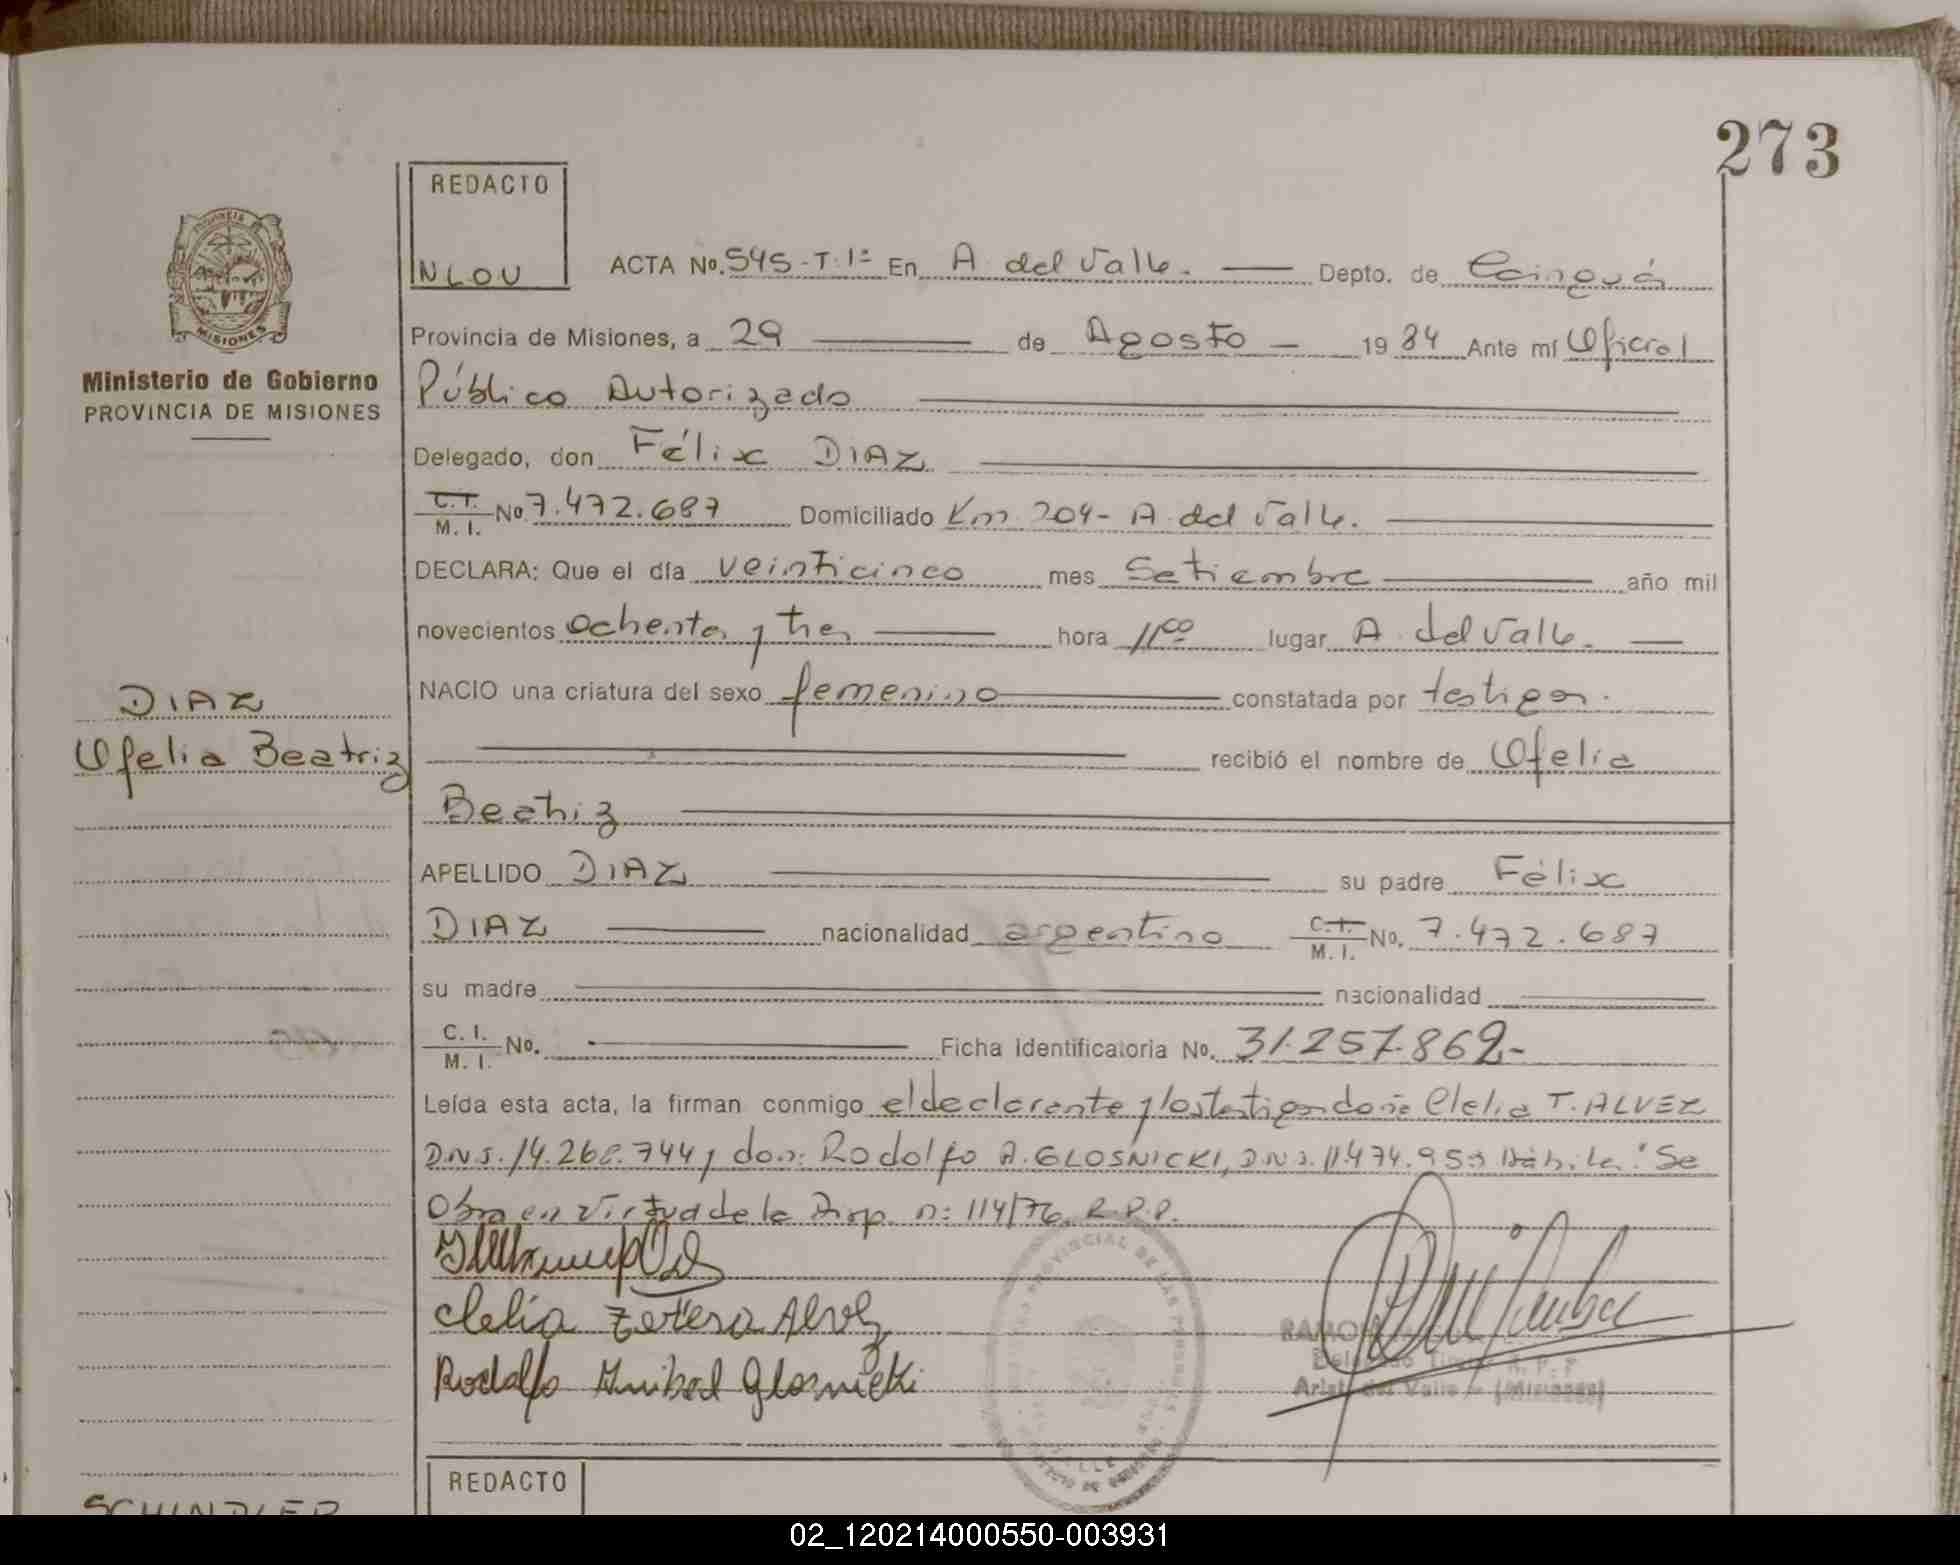 273
REDACTO
NLOU
PROVINCIA
MISIONES
Ministerio de Gobierno
PROVINCIA DE MISIONES
ACTA No. 545-T.1º En A. del Valle. Depto. de Cainguás
Provincia de Misiones, a 29 de Agosto 1984 Ante mí Oficial
Público Autorizado
Delegado, don Félix DIAZ
C.I. M.I. No 7.472.687 Domiciliado Km 204- A. del Valle.
DECLARA: Que el día veinticinco mes Setiembre año mil
novecientos ochenta y tres hora 11:00 lugar A. del Valle.
NACIO una criatura del sexo femenino constatada por testigos.
recibió el nombre de Ofelia
Beatriz
DIAZ
Ofelia Beatriz
APELLIDO DIAZ su padre Félix
DIAZ nacionalidad argentino C.I. M.I. No. 7.472.687
su madre nacionalidad
C.I. M.I. No. Ficha identificatoria No. 31.257.862.-
Leída esta acta, la firman conmigo el declarante y los testigos doña Clelia T. ALVEZ
D.N.I. 14.260.744 y don: Rodolfo A. GLOSNICKI, D.N.I. 11.474.953 Hábiles. "Se
Obra en virtud de la Disp. n: 114/76 R.P.P.
Clelia Teresa Alvez
Rodolfo Anibal Glosnicki
PROVINCIAL DE LAS PERSONAS
RAMON
Delegado Titular R. P. P.
Arist. del Valle - (Misiones)
REDACTO
SCHINDLER
02_120214000550-003931